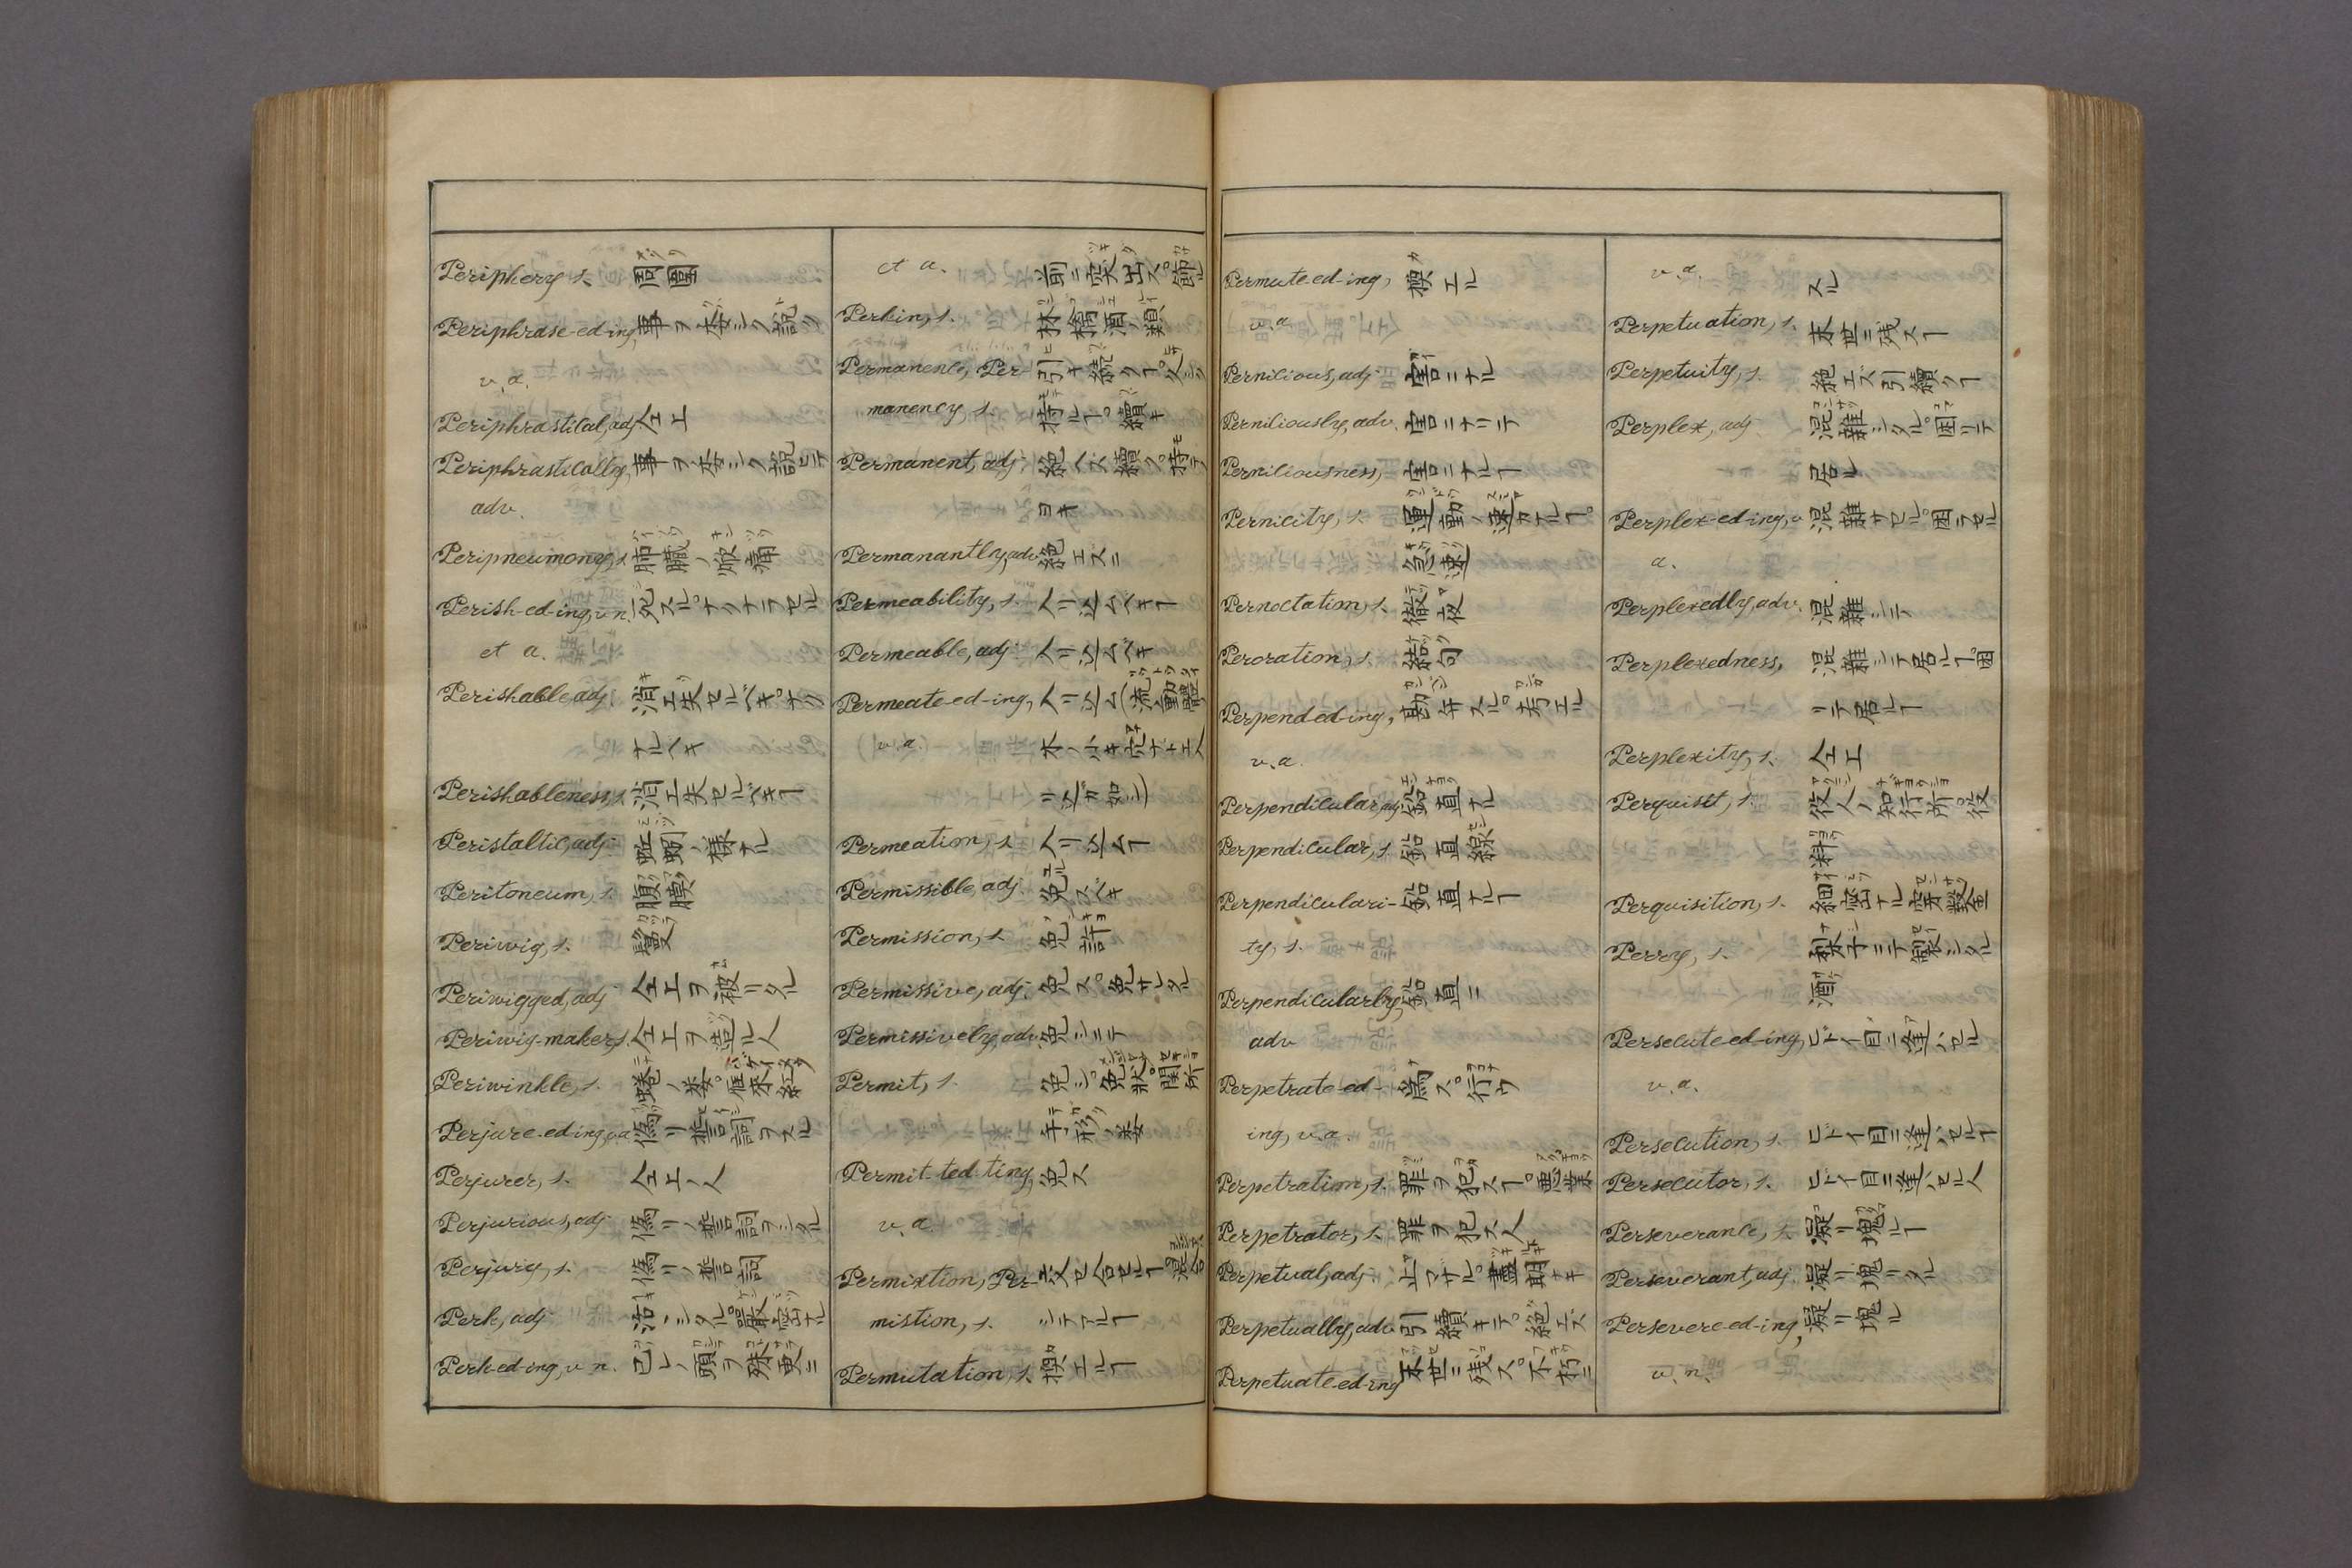 Periphery, s. 周圍
Periphrase-ed-ing, 事ヲ委シク説ク
v. a.
Periphrastical, adj. 仝上
Periphrastically, 事ヲ委シク説ヒテ
adv.
Peripneumony, s. 肺臓ノ焮痛
Perish-ed-ing, v. n. 死スル。ナクナラセル
et a.
Perishable, adj. 消エ失セルベキ。ナク
ナルベキ
Perishableness, s. 消エ失セルベキヿ
Peristaltic, adj. 蚯蚓ノ様ナル
Peritoneum, s. 腹膜
Periwig, s. 鬘
Periwigged, adj. 仝上ヲ被リタル
Periwig-maker, s. 仝上ヲ造ル人
Periwinkle, s. 蜷ノ類。雁来紅
Perjure-ed-ing, v. a. 偽リノ誓詞ヲスル
Perjurer, s. 仝上ノ人
Perjurious, adj. 偽リノ誓詞ヲシタル
Perjury, s. 偽リノ誓詞
Perk, adj. 活々シタル。嚴密ナル
Perk-ed-ing, v. n. 己レノ頭ヲ殊更ニ
et a. 前ニ突出ス。飾ル
Perkin, s. 林檎酒ノ類
Permanence, Per- 引キ続クヿ。久シク
manency, s. 持ルヿ。續キ
Permanent, adj. 絶ヘズ續ク。持テ
ヨキ
Permanantly, adv. 絶エズニ
Permeability, s. 入リ込ムベキヿ
Permeable, adj. 入リ込ムベキ
Permeate-ed-ing, 入リ込ム(流動體
v. a. 水ノ小キ穴ナドエ入
リ込ガ如シ)
Permeation, s. 入リ込ムヿ
Permissible, adj. 免スベキ
Permission, s. 免許
Permissive, adj. 免ス。免サレタル
Permissively, adv. 免シニテ
Permit, s. 免シ。免状。関所
手形ノ類
Permit-ted-ting, 免ス
v. a.
Permixtion, Per- 交セ合セルヿ。混合
mistion, s. シテアルヿ
Permutation, s. 換エルヿ
Permute-ed-ing, 換エル
v. a.
Pernicious, adj. 害ニナル
Perniciously, adv. 害ニナリテ
Perniciousness, 害ニナルヿ
Pernicity, s. 運動ノ速カナルヿ。
急速
Pernoctation, s. 徹夜
Peroration, s. 結句
Perpend-ed-ing, 勘弁スル。考エル
v. a.
Perpendicular, adj. 鉛直ナル
Perpendicular, s. 鉛直線
Perpendiculari- 鉛直ナルヿ
ty, s.
Perpendicularly, 鉛直ニ
adv.
Perpetrate-ed- 為ス。行ウ
ing, v. a.
Perpetration, s. 罪ヲ犯スヿ。悪業
Perpetrator, s. 罪ヲ犯ス人
Perpetual, adj. 止マザル。盡期ナキ
Perpetually, adv. 引續キテ。絶エズ
Perpetuate-ed-ing 末世ニ残ス。不朽ニ
v. a. スル
Perpetuation, s. 末世ニ残スヿ
Perpetuity, s. 絶エズ引續クヿ
Perplex, adj. 混雜シタル。困リテ
居ル
Perplex-ed-ing, v. 混雜サセル。困ラセル
a.
Perplexedly, adv. 混雜シテ
Perplexedness, 混雜シテ居ルヿ。困
リテ居ルヿ
Perplexity, s. 仝上
Perquisit, s. 役人ノ知行所。役
料
Perquisition, s. 細密ナル穿鑿
Perry, s. 梨子ニテ製シタル
酒
Persecute-ed-ing, ヒドイ目ニ逢ハセル
v. a.
Persecution, s. ヒドイ目ニ逢ハセルヿ
Persecutor, s. ヒドイ目ニ逢ハセル人
Perseverance, s. 凝リ塊ルヿ
Perseverant, adj. 凝リ塊リタル
Persevere-ed-ing, 凝リ塊ル
v. n.